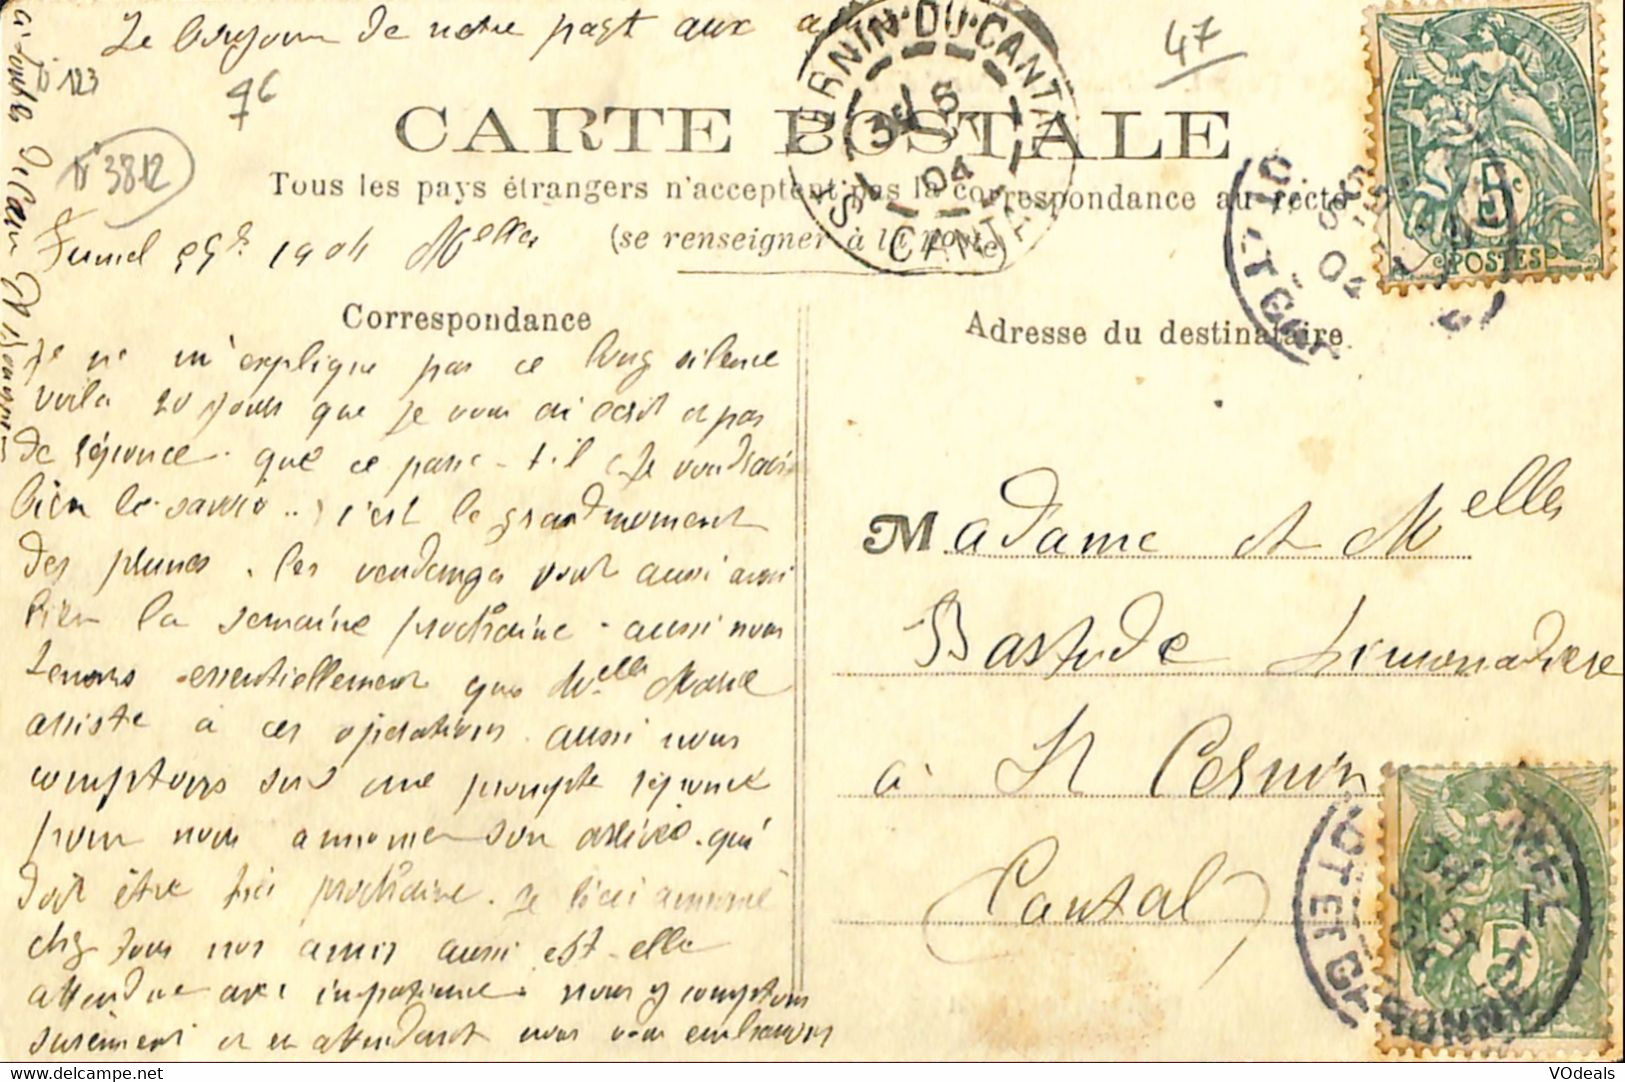 Le bonjour de notre part aux
47
76
N° 123
N° 3812
CARTE POSTALE
Tous les pays étrangers n'acceptent pas la correspondance au recto
(se renseigner à la poste)
Fumel 1904 Melles
Correspondance
Je ne m'explique pas ce long silence
voila 20 jours que je vous ai ecrit et pas
de réponce. que ce passe-t-il (Je voudrais
bien le savoir..) c'est le grand moment
des prunes. les vendanges vont aussi aussi
bien la semaine prochaine. aussi nous
tenons essentiellement que Melle Marie
assiste à ces opérations. aussi nous
comptons sur une prompte réponce
pour nous annoncer son arrivée. qui
doit être très prochaine. Je l'ai annoncé
chez tous nos amis aussi est-elle
attendue avec impatience. nous y comptons
surement et en attendant nous vous embrassons
Adresse du destinataire
Madame et Melles
Bastide Limonadiere
à St Cernin
Cantal
ST CERNIN-DU-CANTAL
CANTAL
04
5c
POSTES
FUMEL
LOT-ET-GARONNE
5c
VOdeals